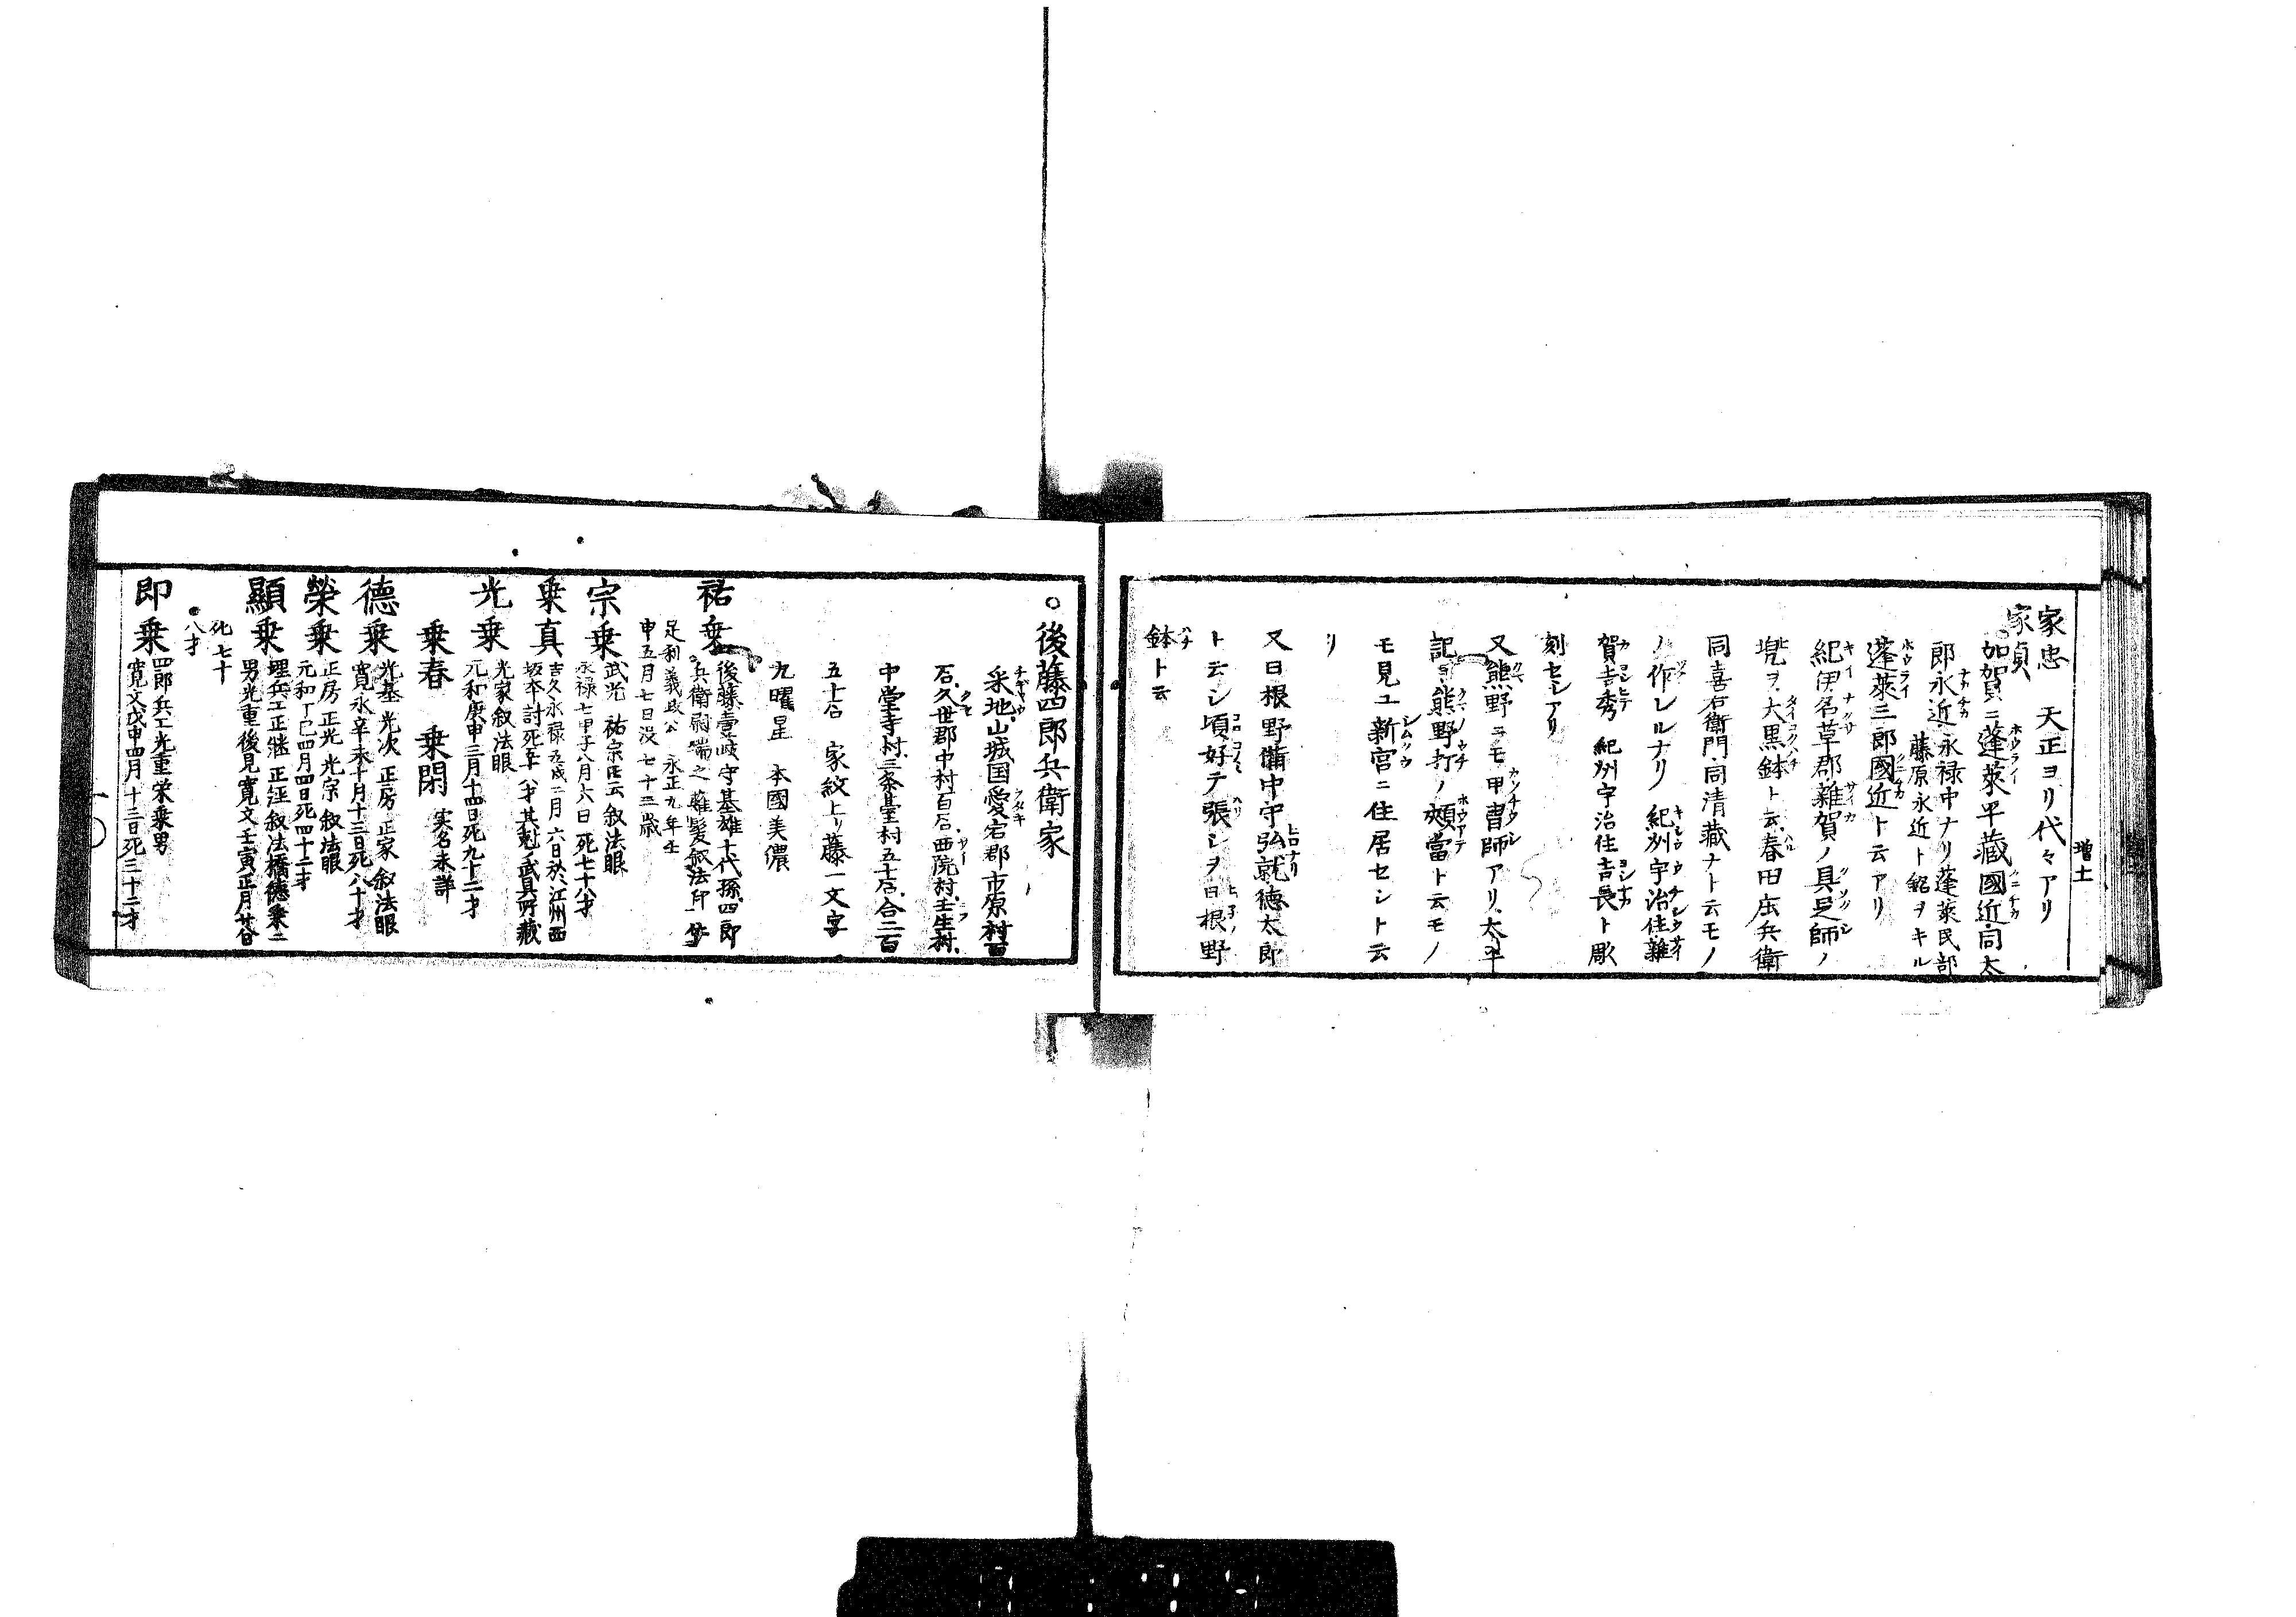 増土
家忠 天正ヨリ代々アリ
家貞
加賀ニ蓬莱平蔵國近同太
郎永近永禄中ナリ蓬莱民部
藤原永近ト銘ヲキル
蓬莱三郎國近ト云アリ
紀伊名草郡雑賀ノ具足師ノ
兜ヲ大黒鉢ト云春田庄兵衛
同喜右衛門同清蔵ナト云モノ
ノ作レルナリ 紀州宇治住雑
賀吉秀 紀州宇治住吉長ト彫
刻セシアリ
又熊野ニモ甲冑師アリ太平
記ヨ熊野打ノ頬當ト云モノ
モ見ユ新宮ニ住居セシト云
リ
又日根野備中守弘就徳太郎
ト云シ頃好テ張シヲ日根野
鉢ト云
○後藤四郎兵衛家
采地山城国愛宕郡市原村百
石久世郡中村百石西院村壬生村
中堂寺村三条臺村五十石合二百
五十石 家紋上リ藤一文字
九曜星 本國美濃
祐乗 後藤壹岐守基雄十代孫四郎
兵衛尉
足利義政公 永正九年壬
申五月七日没七十三歳
宗乗 武光 祐宗トモ云 叙法眼
永禄七甲子八月六日 死七十八才
乗真 吉久永禄五戌三月六日於江州西
坂本討死年
光乗 光家叙法眼
元和庚申三月十四日死九十二才
乗春 乗閑 実名未詳
徳乗 光基 光次 正房 正家 叙法眼
寛永辛未十月十三日死八十才
榮乗 正房 正光 光宗 叙法眼
元和丁巳四月四日死四十二才
顯乗 理兵エ正継 叙法橋徳乗二
男光重後見寛文壬寅正月廿
死七十
八才
即乗 四郎兵エ光重栄乗男
寛文戊申四月十三日死三十二才